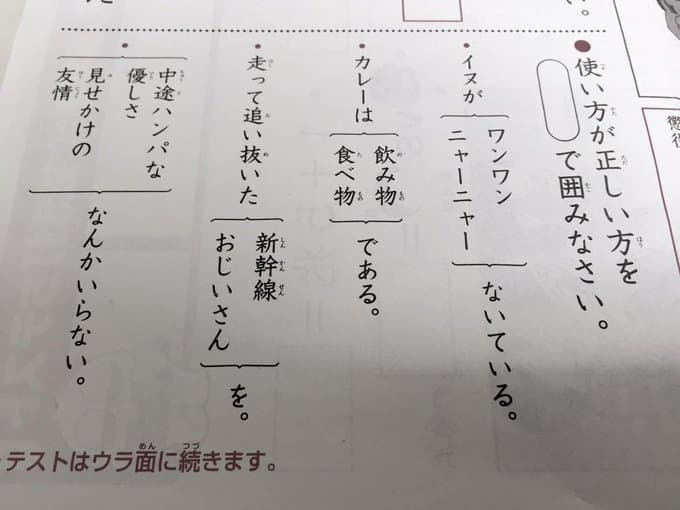 使い方が正しい方を
で囲みなさい。
イヌが
ワンワン
ニャーニャー
ないている。
カレーは
飲み物
食べ物
である。
走って追い抜いた
新幹線
おじいさん
を。
中途ハンパな
優しさ
見せかけの
友情
なんかいらない。
テストはウラ面に続きます。